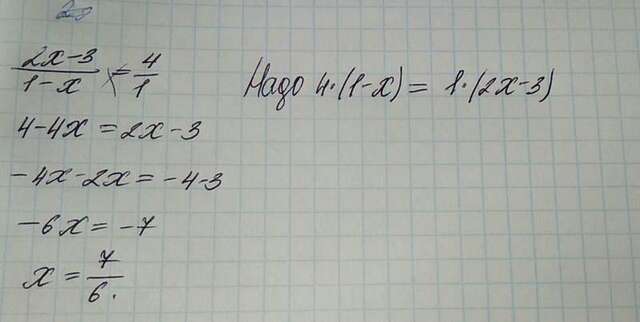 (2x-3)/(1-x) = 4/1 Надо 4·(1-x) = 1·(2x-3)
4-4x = 2x-3
-4x-2x = -4-3
-6x = -7
x = 7/6.